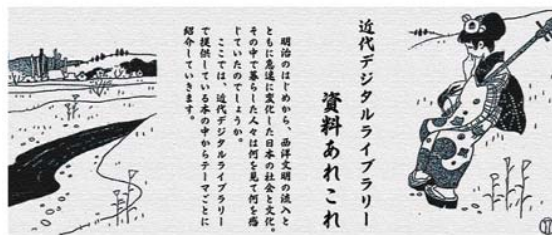 近代デジタルライブラリー
資料あれこれ
明治のはじめから、西洋文明の流入と
ともに急速に変化した日本の社会と文化。
その中で暮らした人々は何を見て何を感
じていたのでしょうか。
ここでは、近代デジタルライブラリー
で提供している本の中からテーマごとに
紹介していきます。